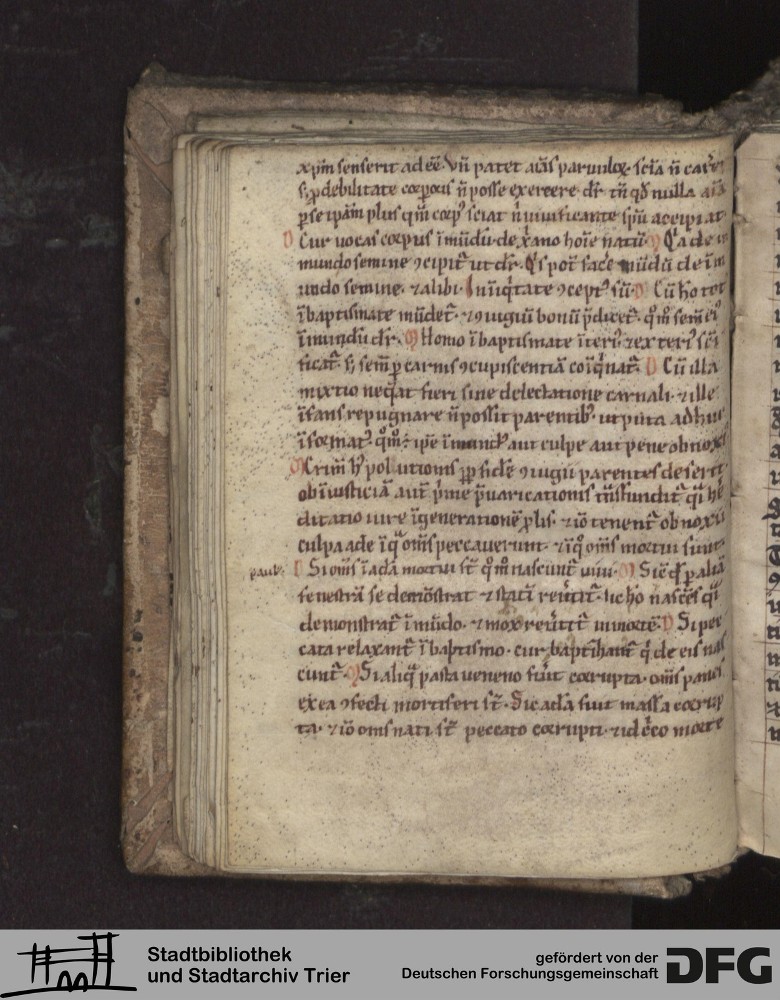 xp̄m senserit adēē. Vñ patet aīas paruuloꝝ. scīa ñ carere
s; ꝓ debilitate corporis ñ posse exercere. dr̄ tñ qđ nulla aīa
ꝑse ipām plus qm̄ corp᾽ sciat ñ uiuificante spū accipiat.
D Cur uocas corpus īmūdū. de xp̄iano hoīe natū. M Q̇a de im
mundo semine ɔcipit᷑ ut dr̄. Q̇s pot̄ facē mūdū de īm
undo semine. ⁊ alibi. In īiq̇tate ɔcept᾽ sū. D Cū ho tot᾽
ībaptismate mūdet᷑. ⁊ ɔiugiū bonū p̄dicet᷑. qm̄ semē ei᾽
īmundū dr̄. M Homo ībaptismate īteri᾽ ⁊ exteri᾽ scī
ficat᷑. s; semꝑ carnis ɔcupiscentiā coīq̇nat᷑. D Cū illa
mixtio neq̇at fieri sine delectatione carnali. ⁊ ille
īfans repugnare ñ possit parentib᾽ utputa adhuc
īformat᾽. qm̄ ÷ ipē īmund᾽ aut culpe aut pene obnoxi᾽.
M Crim̄ h᾽ pollutionis ꝓpt̄ fidē ɔiugii parentes deserit.
ob īiusticiā aut̄ p̄me p̄uaricationis trāsfundit᷑ qͥ he
ditatio iure īgenerationē ꝓlis. ⁊ iō tenent᷑ obnoxii
culpa ade ī qͦ om̄s peccauerunt. ⁊ ī qͦ om̄s mortui sunt.
paul᾽. D Si om̄s ī adā mortui st̄. qm̄ nascunt᷑ uiui. M Sic qͥ ꝑ aliā
fenestrā se demōstrat ⁊ statī reūtit᷑. sic ho nascēs qͥ
demonstrat᷑ ī mūdo. ⁊ mox reūtit᷑ ī morte. D Si pec
cata relaxant᷑ ī baptismo. cur baptizant᷑ qͥ de eis nas
cunt᷑. M Si aliqͣ pasta ueneno fūit corrupta. om̄s panes
ex ea ɔfecti mortiferi st̄. Sic adā fuit massa corrup
ta. ⁊ iō om̄s nati st̄ peccato corrupti. ⁊ idcͦco morte
Stadtbibliothek
und Stadtarchiv Trier
gefördert von der
Deutschen Forschungsgemeinschaft
DFG